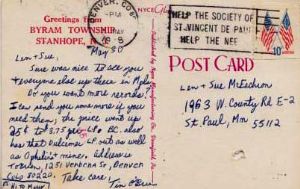 Greetings from
BYRAM TOWNSHIP
STANHOPE, N.J.
DENVER, CO
PM
MAY
HELP THE SOCIETY OF
ST. VINCENT DE PAUL
HELP THE NEEDY
10¢
POST CARD
May 30
Len + Sue,
Sure was nice to see you
+ everyone else up there in
Do you want more records?
I can send you some more if you
need them, the price went up
25¢ to 3.75 per LP BC. also
has that Dalcimer LP out as well
as Ophelia's mine, address
O'Brien, 1251 Verbena S, Denver
Colo 80220. Take care,
Tim O'Brien
Len + Sue McEachron
1963 W. County Rd E-2
St. Paul, Mn 55112